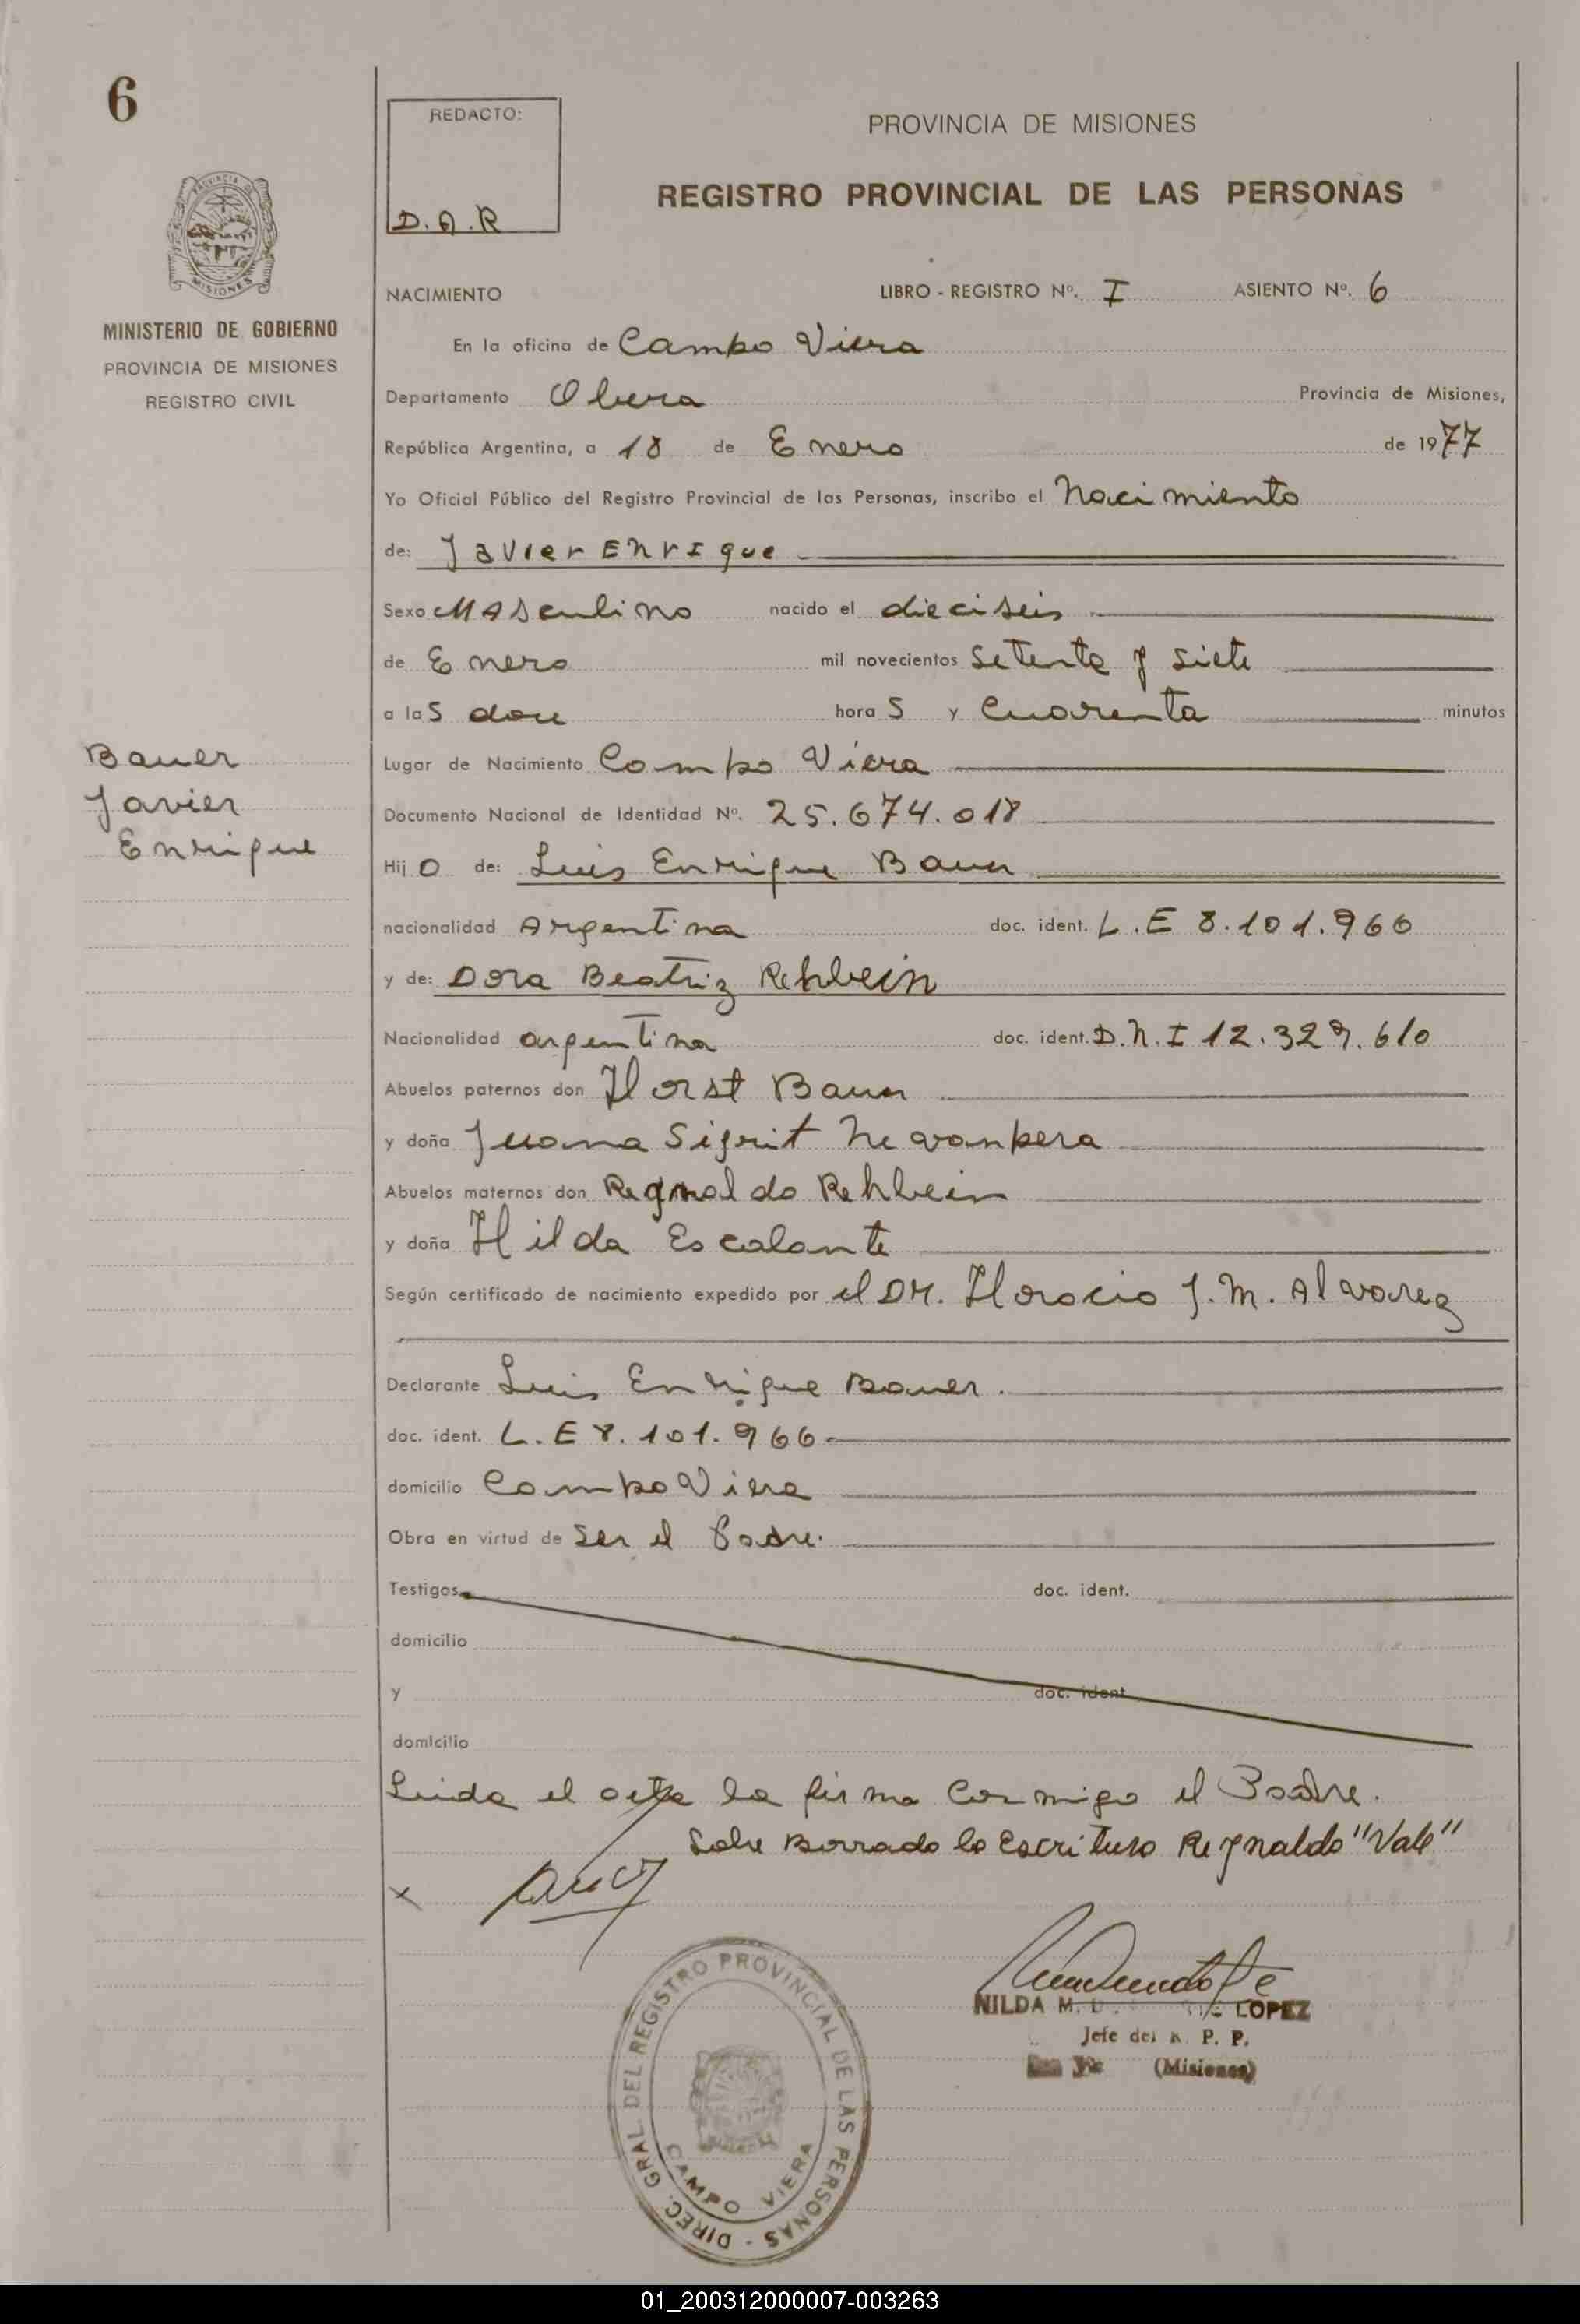 6
REDACTO:
D.A.R
PROVINCIA DE MISIONES
REGISTRO PROVINCIAL DE LAS PERSONAS
PROVINCIA DE
MISIONES
MINISTERIO DE GOBIERNO
PROVINCIA DE MISIONES
REGISTRO CIVIL
NACIMIENTO LIBRO - REGISTRO Nº. I ASIENTO Nº. 6
En la oficina de Campo Viera
Departamento Obera Provincia de Misiones,
República Argentina, a 18 de Enero de 1977
Yo Oficial Público del Registro Provincial de las Personas, inscribo el Nacimiento
de: Javier Enrique
Sexo Masculino nacido el dieciseis
de Enero mil novecientos setenta y siete
a las doce horas y cuarenta minutos
Bauer
Javier
Enrique
Lugar de Nacimiento Campo Viera
Documento Nacional de Identidad Nº. 25.674.018
Hijo de: Luis Enrique Bauer
nacionalidad Argentina doc. ident. L.E 8.101.966
y de: Dora Beatriz Rehbein
Nacionalidad argentina doc. ident. D.N.I 12.329.610
Abuelos paternos don Horst Bauer
y doña Juana Sigrit
Abuelos maternos don Reynaldo Rehbein
y doña Hilda Escalante
Según certificado de nacimiento expedido por el DR. Horacio J.M. Alvarez
Declarante Luis Enrique Bauer.
doc. ident. L.E 8.101.966
domicilio Campo Viera
Obra en virtud de ser el Padre.
Testigos doc. ident.
domicilio
y doc. ident.
domicilio
Leida el acta la firma conmigo el Padre.
Sobre Borrado lo Escrituro Reynaldo "Vale"
x
DIREC. GRAL. DEL REGISTRO PROVINCIAL DE LAS PERSONAS -
CAMPO VIERA
NILDA M. LOPEZ
Jefe del R. P. P.
(Misiones)
01_200312000007-003263